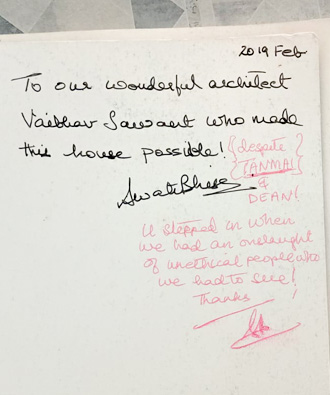 2019 Feb
To our wonderful architect
Vaibhav Sawant who made
this house possible! {despite
TANMAI
&
DEAN!}
U stepped in when
we had an onslaught
of unethical people who
we had to see!
Thanks !